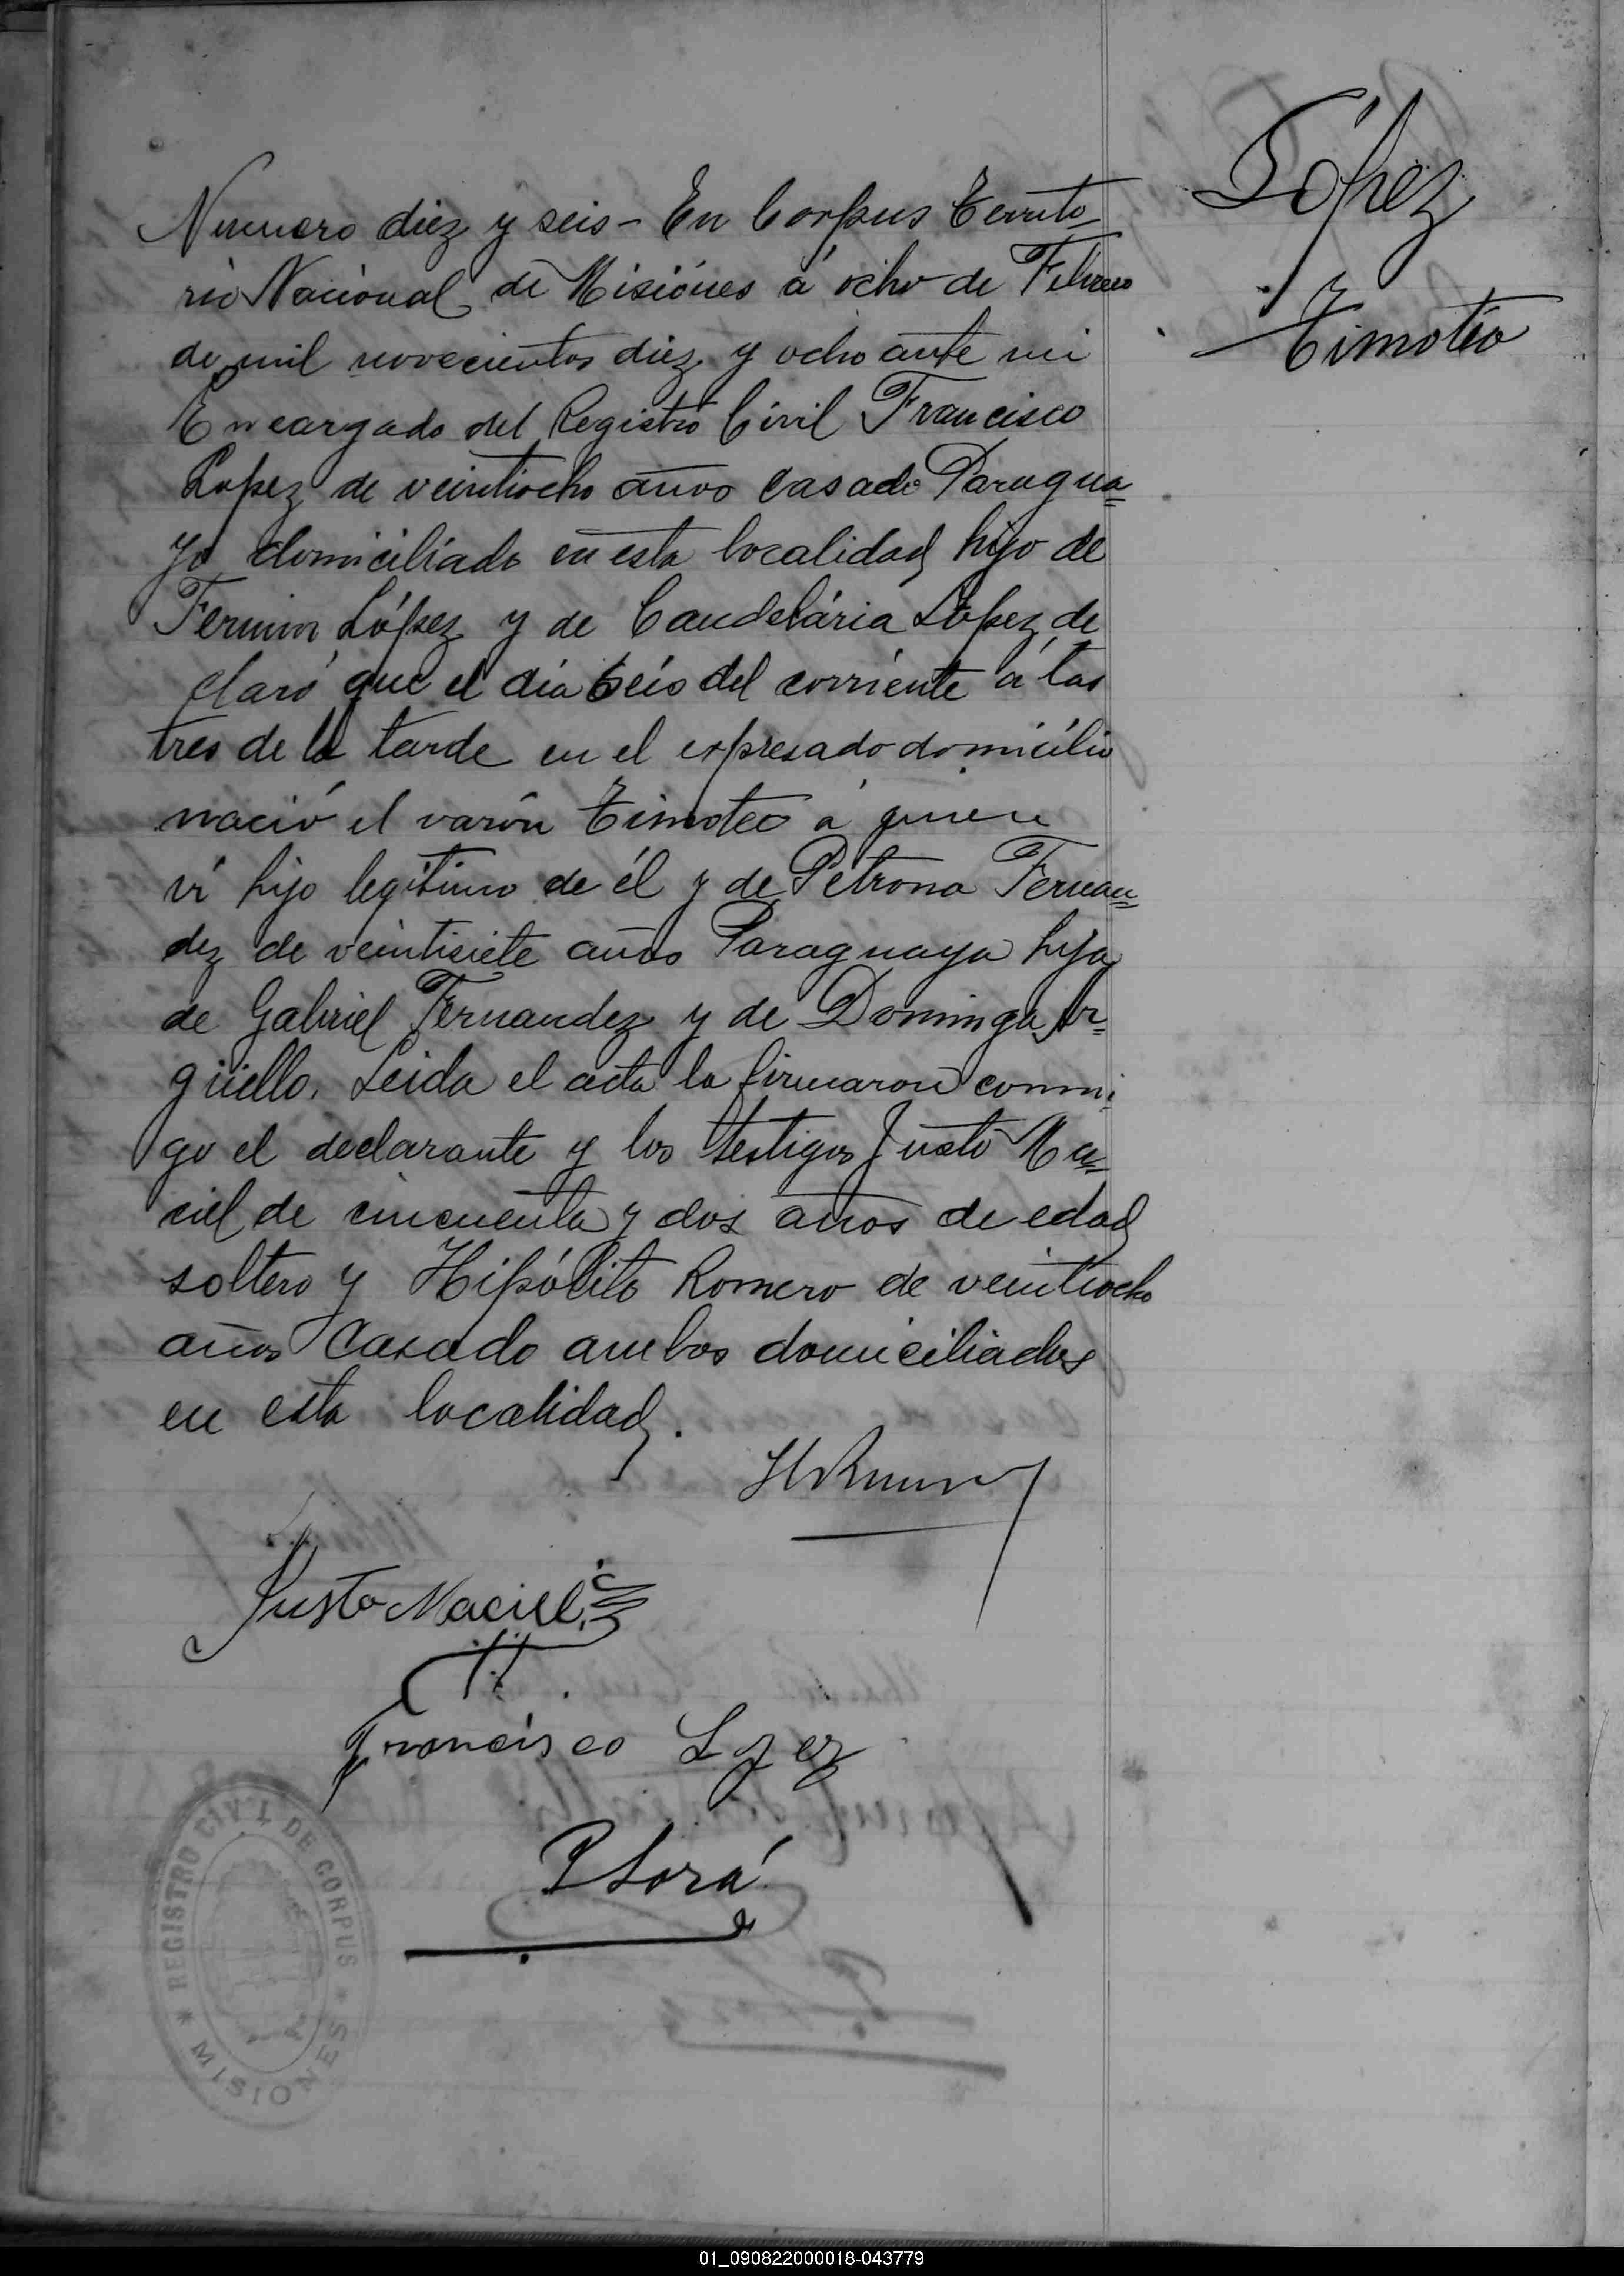 López
Timotéo
Numero diez y seis - En Corpus Territo-
rio Nacional de Misiónes á ocho de Febrero
de mil novecientos diez y ocho ante mi
Encargado del Registro Civil Francisco
Lopez de veintiocho años casado Paragua=
yo domiciliado en esta localidad hijo de
Fermin López y de Candelária López de
claró que el dia seis del corriente á las
tres de la tarde en el expresado domicílio
nació el varón Timoteo á quien
vi hijo legítimo de él y de Petrona Fernan=
dez de veintisiete años Paraguaya hija
de Gabriel Fernandez y de Dominga Ar=
güello. Leida el acta la firmaron conmi-
go el declarante y los testigos Justo Ma=
ciel de cincuenta y dos años de edad
soltero y Hipólito Romero de veintiocho
años Casado ambos domiciliados
en esta localidad.
Justo Maciel
Francisco Lpez
P Lorá
REGISTRO CIVIL DE CORPUS
* MISIONES *
01_090822000018-043779